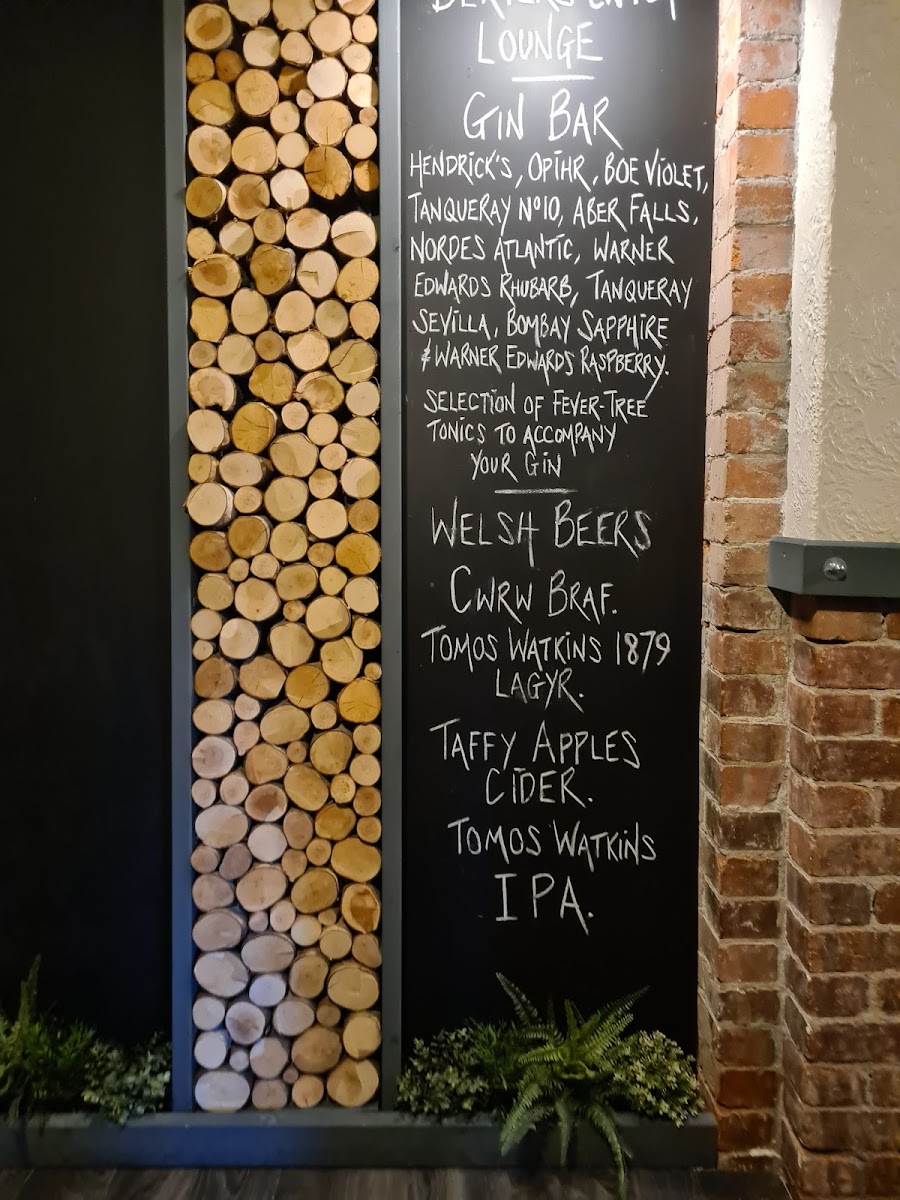 LOUNGE
GIN BAR
HENDRICK'S, OPIHR, BOE VIOLET,
TANQUERAY Nº10, ABER FALLS,
NORDES ATLANTIC, WARNER
EDWARDS RHUBARB, TANQUERAY
SEVILLA, BOMBAY SAPPHIRE
& WARNER EDWARDS RASPBERRY.
SELECTION OF FEVER-TREE
TONICS TO ACCOMPANY
YOUR GIN
WELSH BEERS
CWRW BRAF.
TOMOS WATKINS 1879
LAGYR.
TAFFY APPLES
CIDER.
TOMOS WATKINS
IPA.